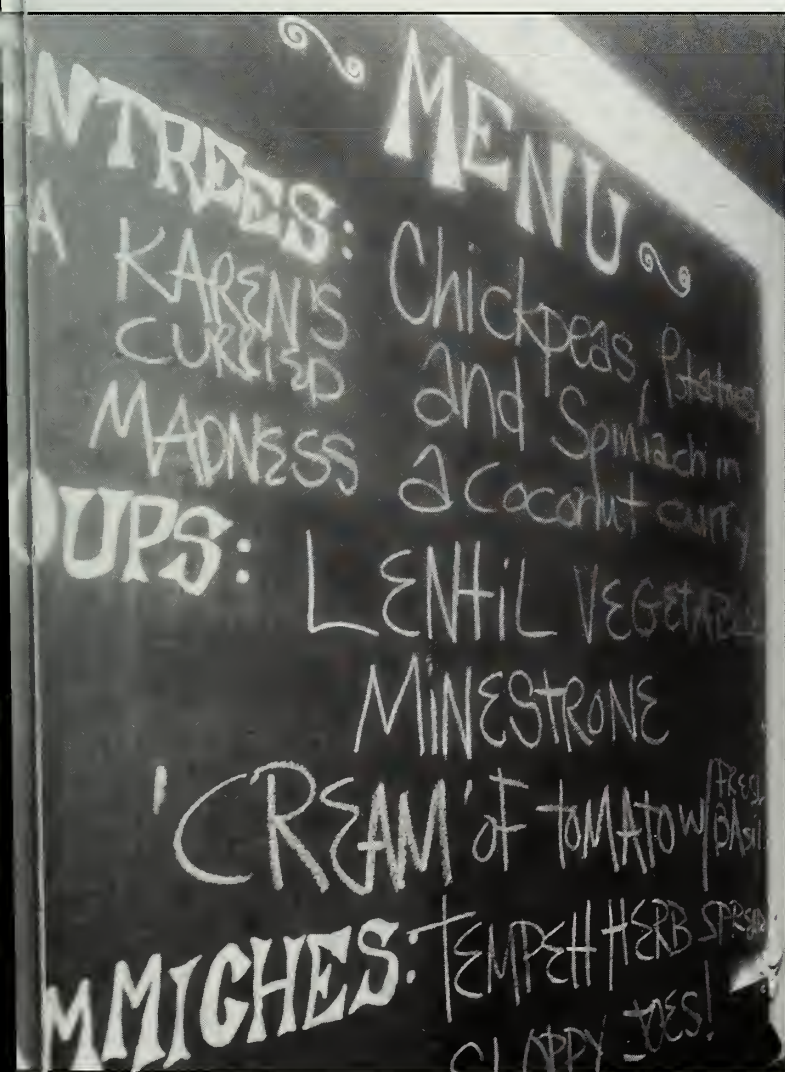 ~ MENU ~
NTREES:
A KAREN'S Chickpeas, Potatoes,
CURRIED and Spiniach in
MADNESS a coconut curry
OUPS: LENTIL VEGETABLE
MINESTRONE
'CREAM' OF TOMATO W/ FRESH BASIL
MMICHES: TEMPEH HERB SPREAD
SLOPPY JOES!